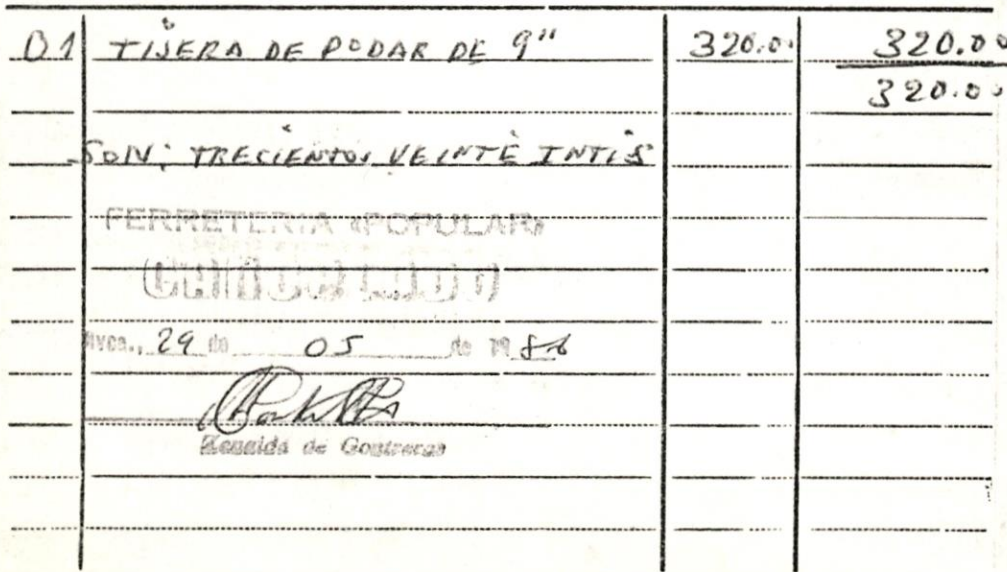 01 TIJERA DE PODAR DE 9" 320.00 320.00
320.00
SON: TRECIENTOS VEINTE INTIS
FERRETERIA «POPULAR»
CANCELADO
29 de 05 de 1986
Zenaida de Contreras